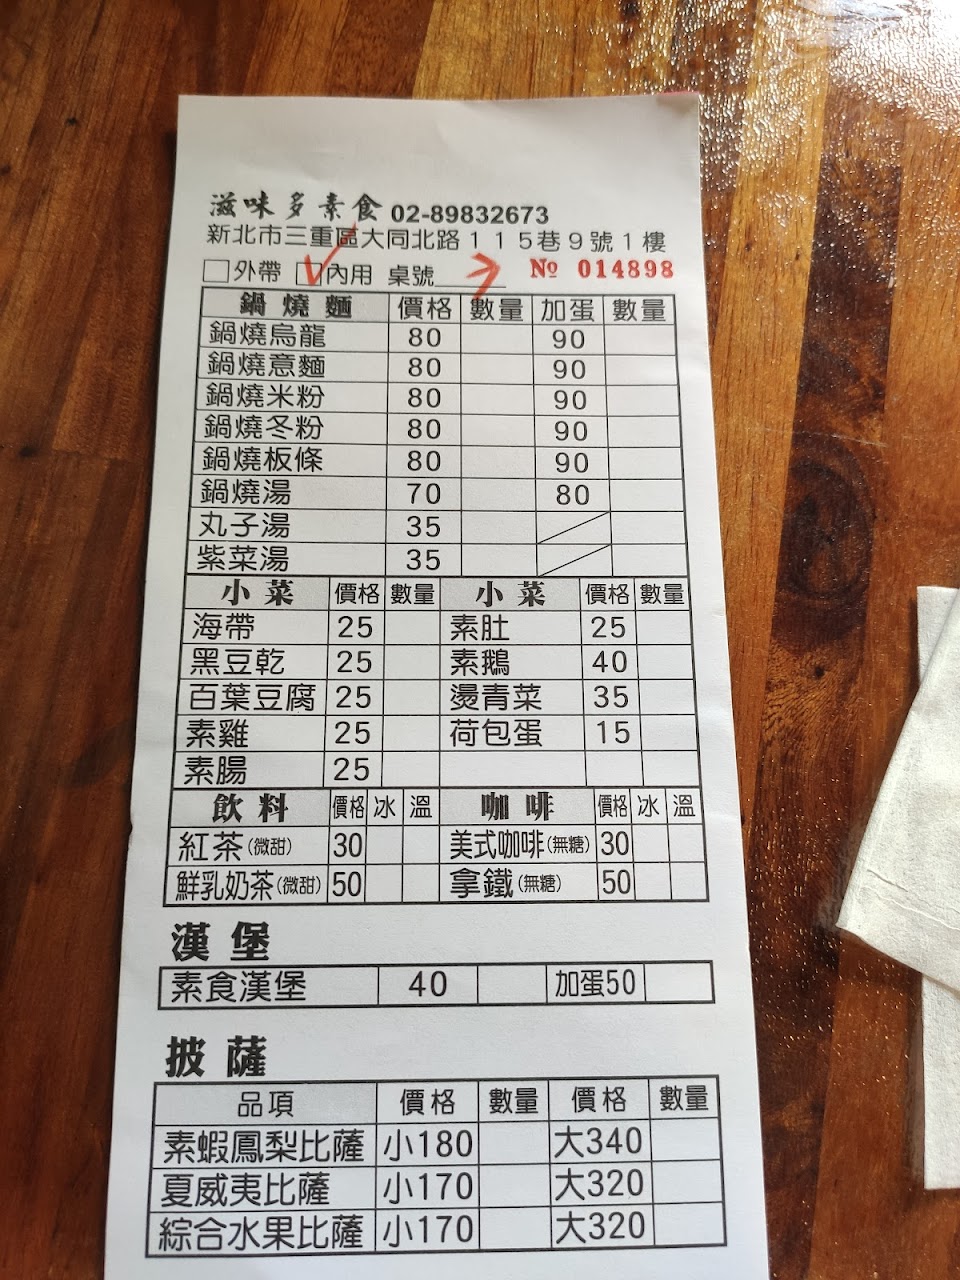 滋味多素食 02-89832673
新北市三重區大同北路115巷9號1樓
□外帶 □內用 桌號______ № 014898
鍋燒麵 價格 數量 加蛋 數量
鍋燒烏龍 80 90
鍋燒意麵 80 90
鍋燒米粉 80 90
鍋燒冬粉 80 90
鍋燒板條 80 90
鍋燒湯 70 80
丸子湯 35
紫菜湯 35
小菜 價格 數量 小菜 價格 數量
海帶 25 素肚 25
黑豆乾 25 素鵝 40
百葉豆腐 25 燙青菜 35
素雞 25 荷包蛋 15
素腸 25
飲料 價格 冰 溫 咖啡 價格 冰 溫
紅茶(微甜) 30 美式咖啡(無糖) 30
鮮乳奶茶(微甜) 50 拿鐵(無糖) 50
漢堡
素食漢堡 40 加蛋50
披薩
品項 價格 數量 價格 數量
素蝦鳳梨比薩 小180 大340
夏威夷比薩 小170 大320
綜合水果比薩 小170 大320